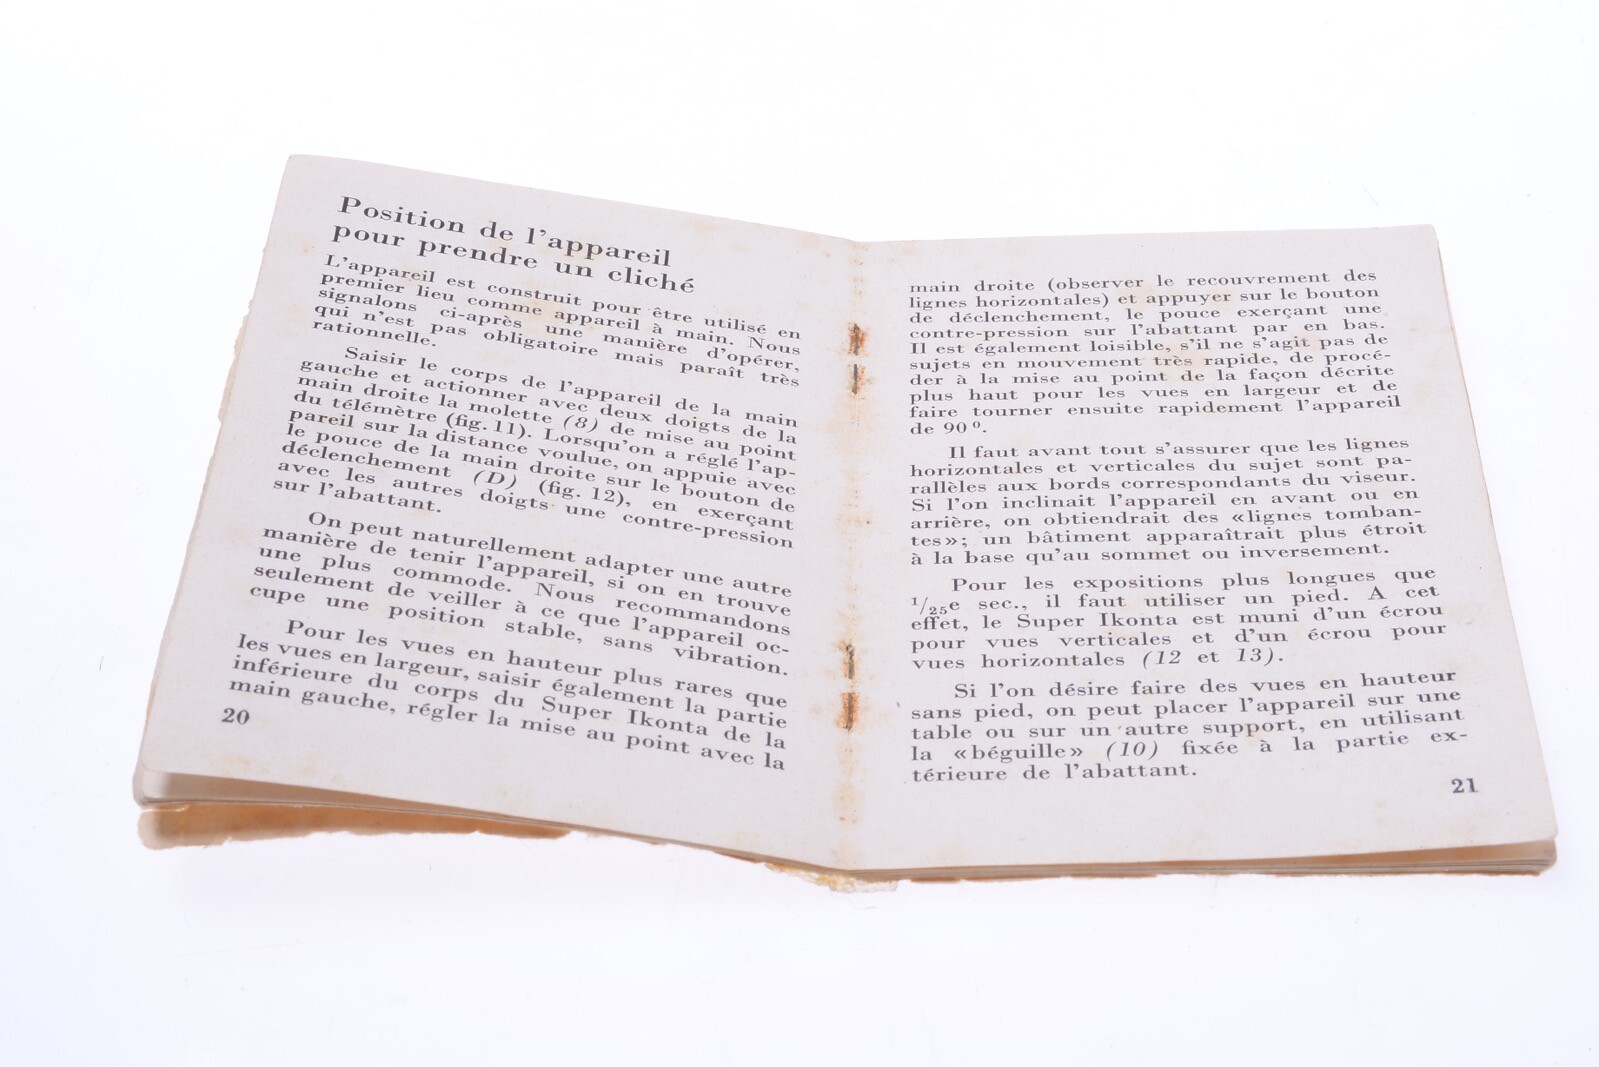 Position de l'appareil
pour prendre un cliché
L'appareil est construit pour être utilisé en
premier lieu comme appareil à main. Nous
signalons ci-après une manière d'opérer,
qui n'est pas obligatoire mais paraît très
rationnelle.
Saisir le corps de l'appareil de la main
gauche et actionner avec deux doigts de la
main droite la molette (8) de mise au point
du télémètre (fig. 11). Lorsqu'on a réglé l'ap-
pareil sur la distance voulue, on appuie avec
le pouce de la main droite sur le bouton de
déclenchement (D) (fig. 12), en exerçant
avec les autres doigts une contre-pression
sur l'abattant.
On peut naturellement adapter une autre
manière de tenir l'appareil, si on en trouve
une plus commode. Nous recommandons
seulement de veiller à ce que l'appareil oc-
cupe une position stable, sans vibration.
Pour les vues en hauteur plus rares que
les vues en largeur, saisir également la partie
inférieure du corps du Super Ikonta de la
main gauche, régler la mise au point avec la
20
main droite (observer le recouvrement des
lignes horizontales) et appuyer sur le bouton
de déclenchement, le pouce exerçant une
contre-pression sur l'abattant par en bas.
Il est également loisible, s'il ne s'agit pas de
sujets en mouvement très rapide, de procé-
der à la mise au point de la façon décrite
plus haut pour les vues en largeur et de
faire tourner ensuite rapidement l'appareil
de 90⁰.
Il faut avant tout s'assurer que les lignes
horizontales et verticales du sujet sont pa-
rallèles aux bords correspondants du viseur.
Si l'on inclinait l'appareil en avant ou en
arrière, on obtiendrait des «lignes tomban-
tes»; un bâtiment apparaîtrait plus étroit
à la base qu'au sommet ou inversement.
Pour les expositions plus longues que
1/25e sec., il faut utiliser un pied. A cet
effet, le Super Ikonta est muni d'un écrou
pour vues verticales et d'un écrou pour
vues horizontales (12 et 13).
Si l'on désire faire des vues en hauteur
sans pied, on peut placer l'appareil sur une
table ou sur un autre support, en utilisant
la «béguille» (10) fixée à la partie ex-
térieure de l'abattant.
21